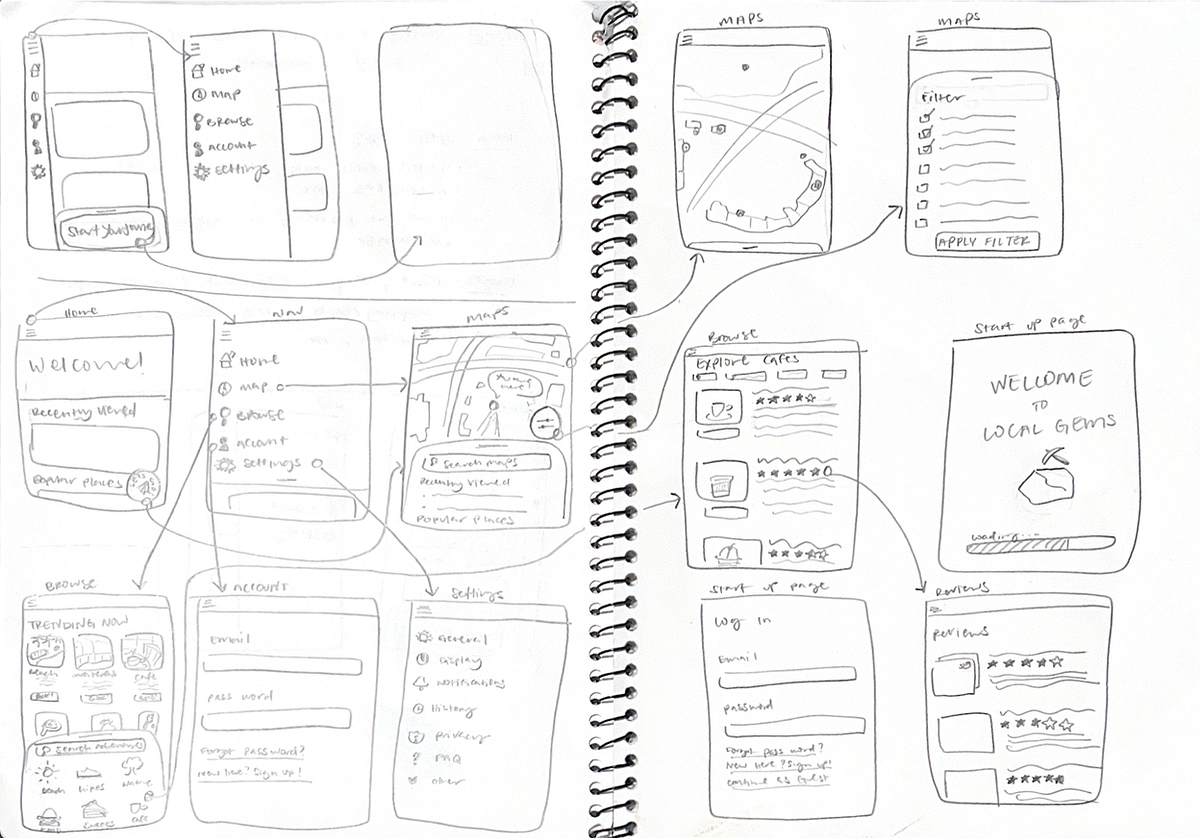 Home
Map
Browse
Account
Settings
Start your
Home
Welcome!
Recently Viewed
Popular places
Nav
Home
Map
Browse
Account
Settings
Maps
Search maps
Recently Viewed
Popular Places
Browse
TRENDING NOW
Beach
cafe
Search Adventures
Beach
Hikes
Nature
Account
Email
Password
Forgot password?
New here? Sign up!
Settings
General
Display
Notifications
History
Privacy
FAQ
Other
MAPS
MAPS
Filter
APPLY FILTER
Browse
Explore Cafes
Start up page
WELCOME
TO
LOCAL GEMS
loading...
Start up page
Log In
Email
Password
Forgot password?
New here? Sign up!
continue as Guest
Reviews
Reviews